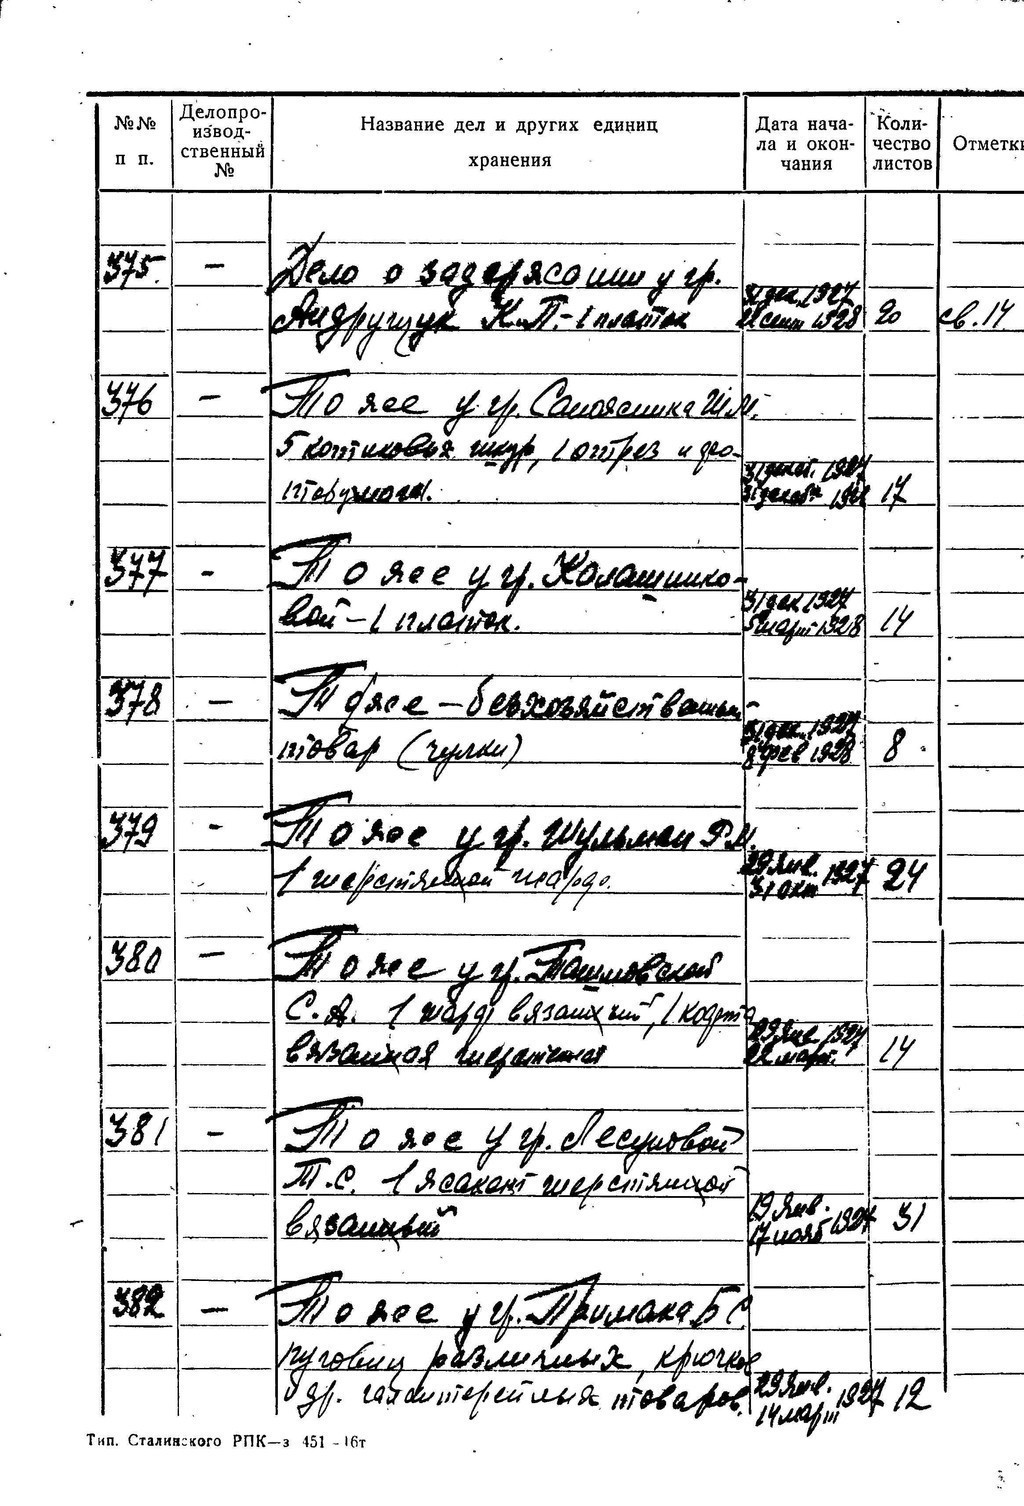 №№ п п.
Делопро-
извод-
ственный
№
Название дел и других единиц
хранения
Дата нача-
ла и окон-
чания
Коли-
чество
листов
Отметки
375. — Дело о задержании у гр.
Андрущук К.П. – 1 платок
31 дек. 1927
22 сент 1928
20
св. 14
376 — То же у гр. Сапожника Ш.М.
5 котиковых шкур, 1 отрез и дро-
31 декаб. 1927
31 декабр 1928
17
377 - То же у гр. Калашнико-
вой – 1 платок.
31 дек 1927
5 март 1928
14
378 — То же – безхозяйственный
товар (чулки)
31 дек. 1927
8 фев 1928
8
379 - То же у гр. Шульман Р.М.
1 шерстянной шарф.
29 Янв. 1927
31 окт
24
380 — То же у гр.
С.А. 1 шарф вязанный, 1 кофта
вязанная шерстяная
29 Янв. 1927
22 март.
14
381 – То же у гр. Лесуновой
Т.С. 1 жакет шерстянной
вязанный
19 Янв. 1927
17 нояб
31
382 — То же у гр. Примака Б.С.
пуговиц различных, крючков
и др. галантерейных товаров.
29 Янв. 1927
14 март
12
Тип. Сталинского РПК—з 451 – 16т